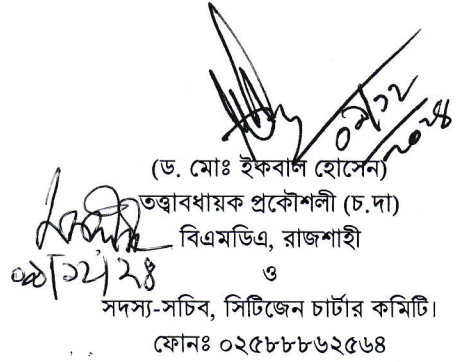 ০৯/১২/২০২৪
(ড. মোঃ ইকবাল হোসেন)
তত্ত্বাবধায়ক প্রকৌশলী (চ.দা)
বিএমডিএ, রাজশাহী
০৯/১২/২৪
ও
সদস্য-সচিব, সিটিজেন চার্টার কমিটি।
ফোনঃ ০২৫৮৮৮৬২৫৬৪